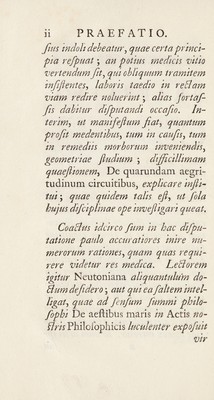 ii PRAEFATIO.
ſius indoli debeatur, quae certa princi-
pia reſpuat; an potius medicis vitio
vertendum ſit, qui obliquum tramitem
inſiſtentes, laboris taedio in rectam
viam redire noluerint; alias fortaſ-
ſis dabitur diſputandi occaſio. In-
terim, ut manifeſtum fiat, quantum
proſit medentibus, tum in cauſis, tum
in remediis morborum inveniendis,
geometriae ſtudium; difficillimam
quaeſtionem, De quarundam aegri-
tudinum circuitibus, explicare inſti-
tui; quae quidem talis eſt, ut ſola
hujus diſciplinae ope inveſtigari queat.
Coactus idcirco ſum in hac diſpu-
tatione paulo accuratiores inire nu-
merorum rationes, quam quas requi-
rere videtur res medica. Lectorem
igitur Neutoniana aliquantulum do-
ctum deſidero; aut qui ea ſaltem intel-
ligat, quae ad ſenſum ſummi philo-
ſophi De aeſtibus maris in Actis no-
ſtris Philoſophicis luculenter expoſuit
vir